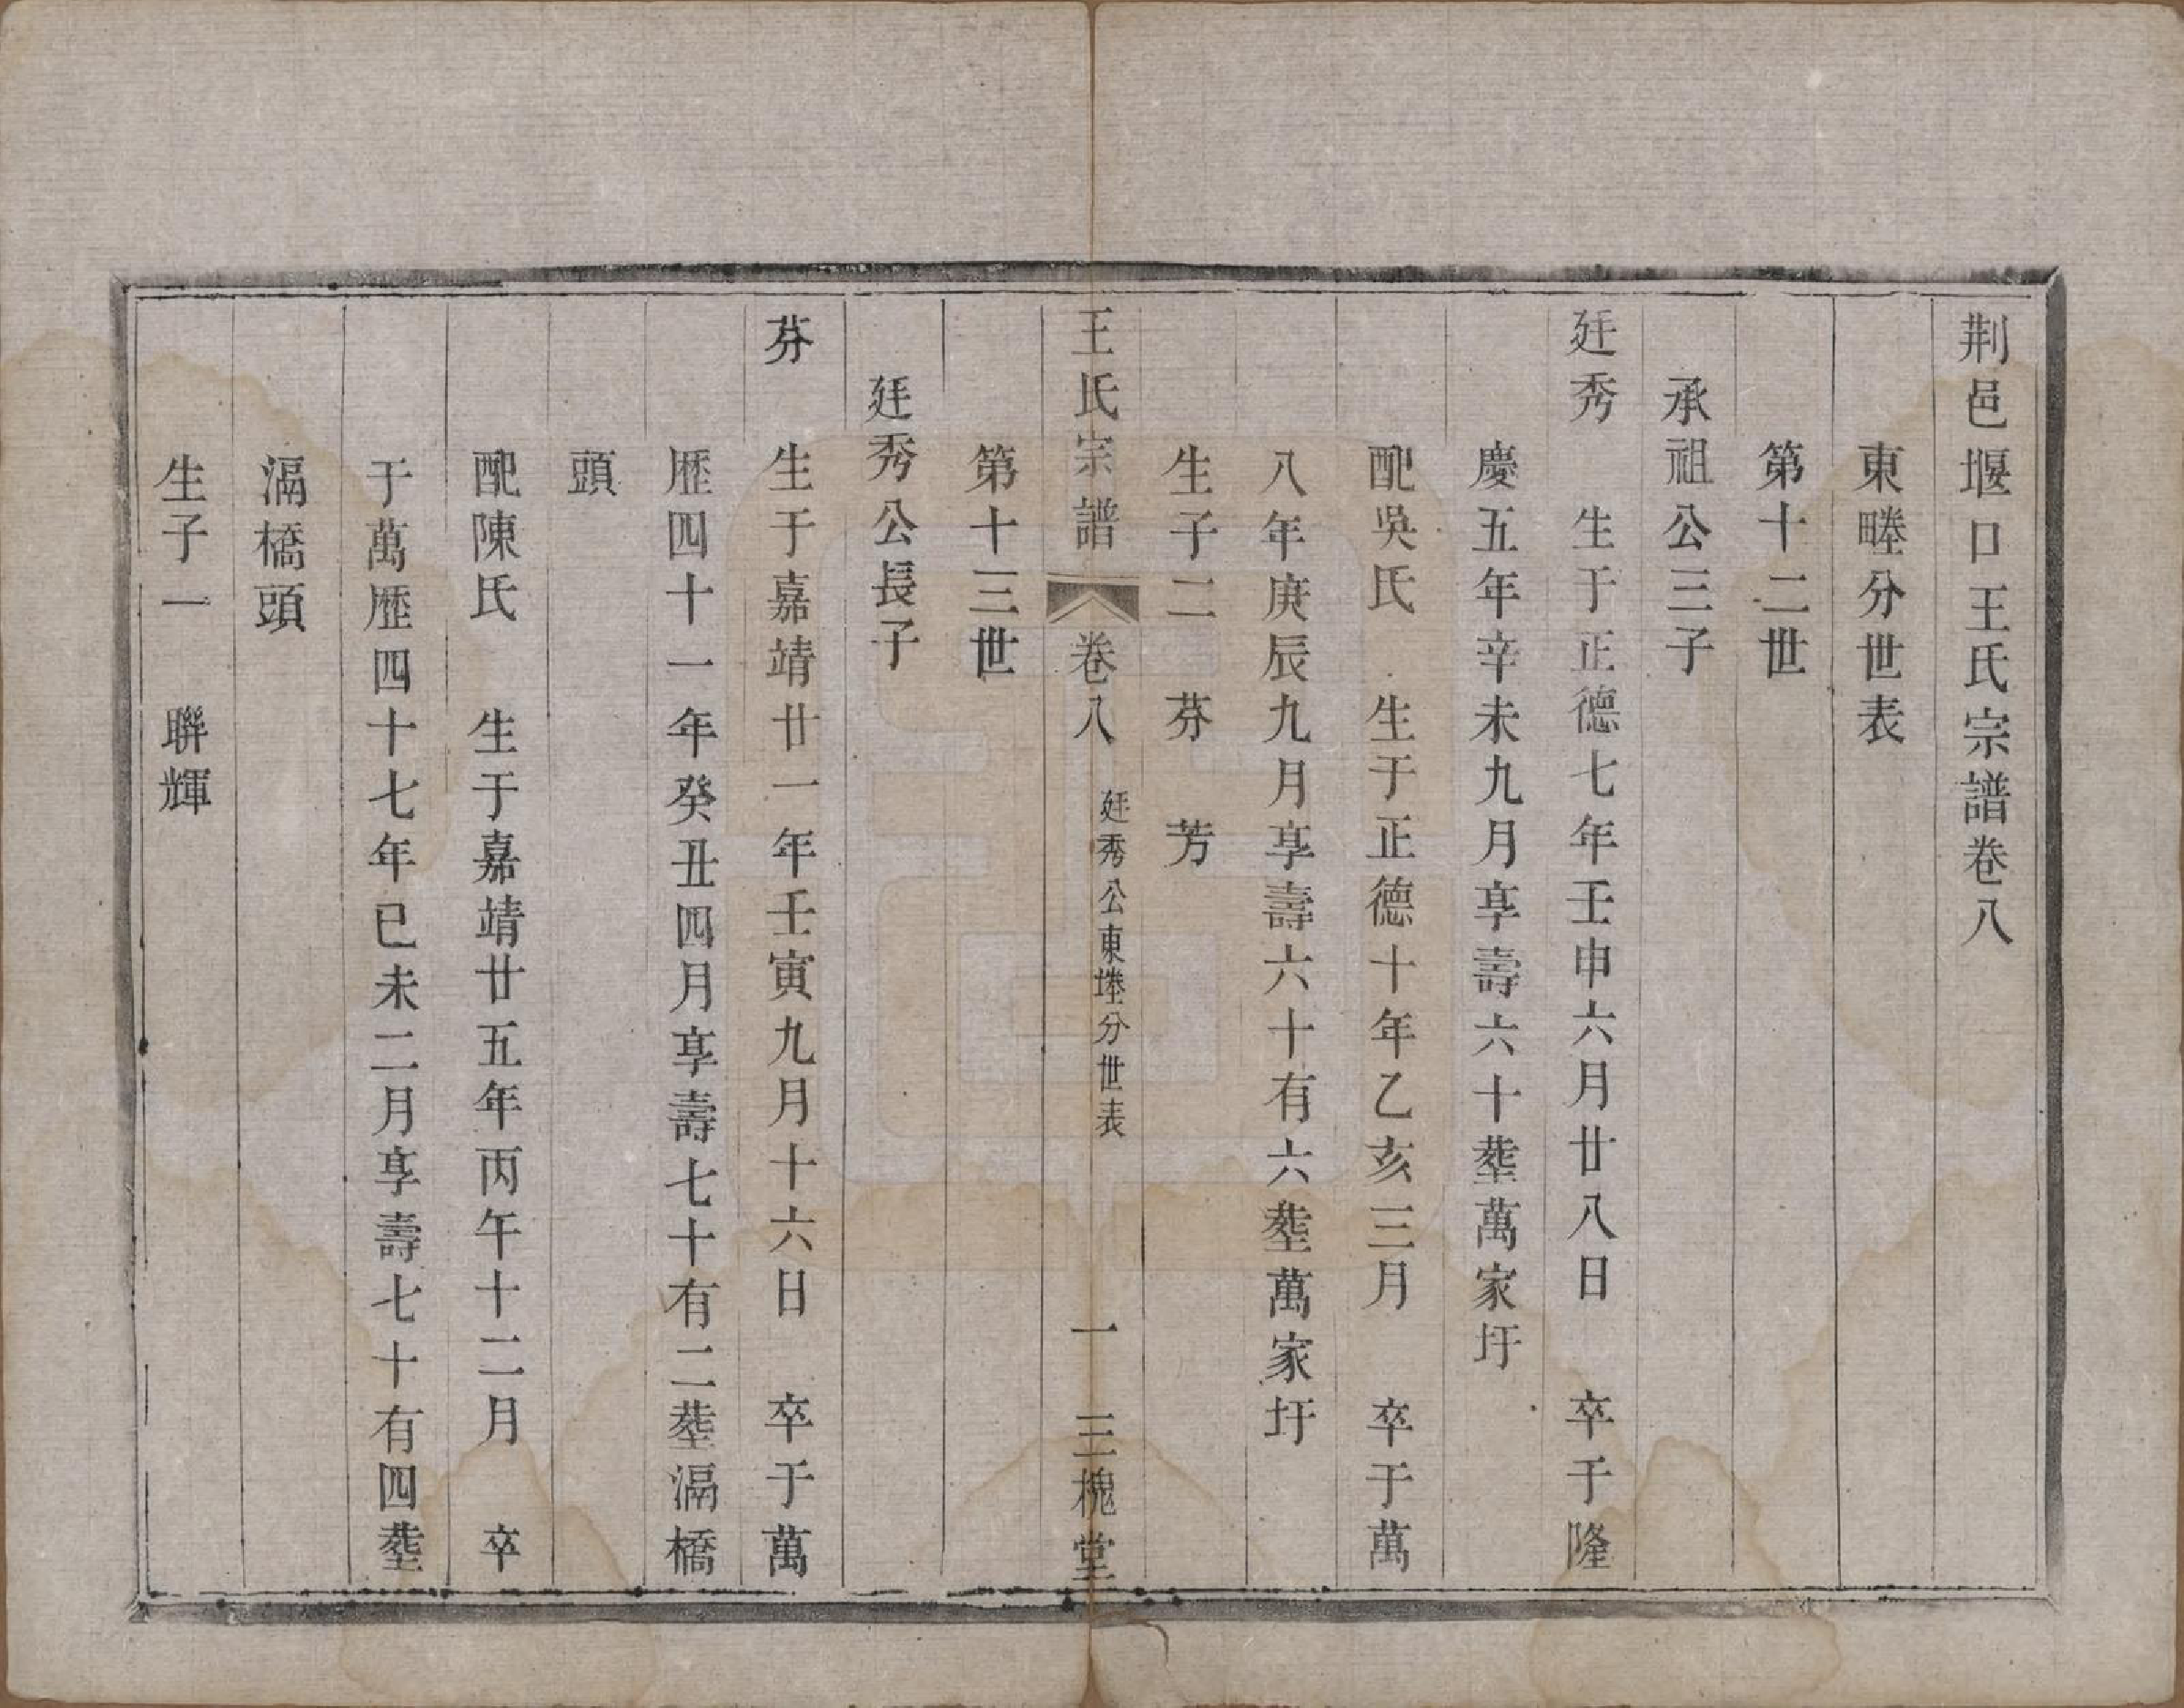 荆邑堰口王氏宗譜卷八
東𡌴分世表
第十二世
承祖公三子
廷秀　生于正德七年壬申六月廿八日　卒于隆
慶五年辛未九月享壽六十塟萬家圩
配吳氏　生于正德十年乙亥三月　卒于萬
八年庚辰九月享壽六十有六塟萬家圩
生子二　芬　芳
王氏宗譜　卷八　廷秀公東𡌴分世表　一　三槐堂
第十三世
廷秀公長子
芬　生于嘉靖廿一年壬寅九月十六日　卒于萬
歷四十一年癸丑四月享壽七十有二塟滆橋
頭
配陳氏　生于嘉靖廿五年丙午十二月　卒
于萬歷四十七年已未二月享壽七十有四塟
滆橋頭
生子一　聯輝